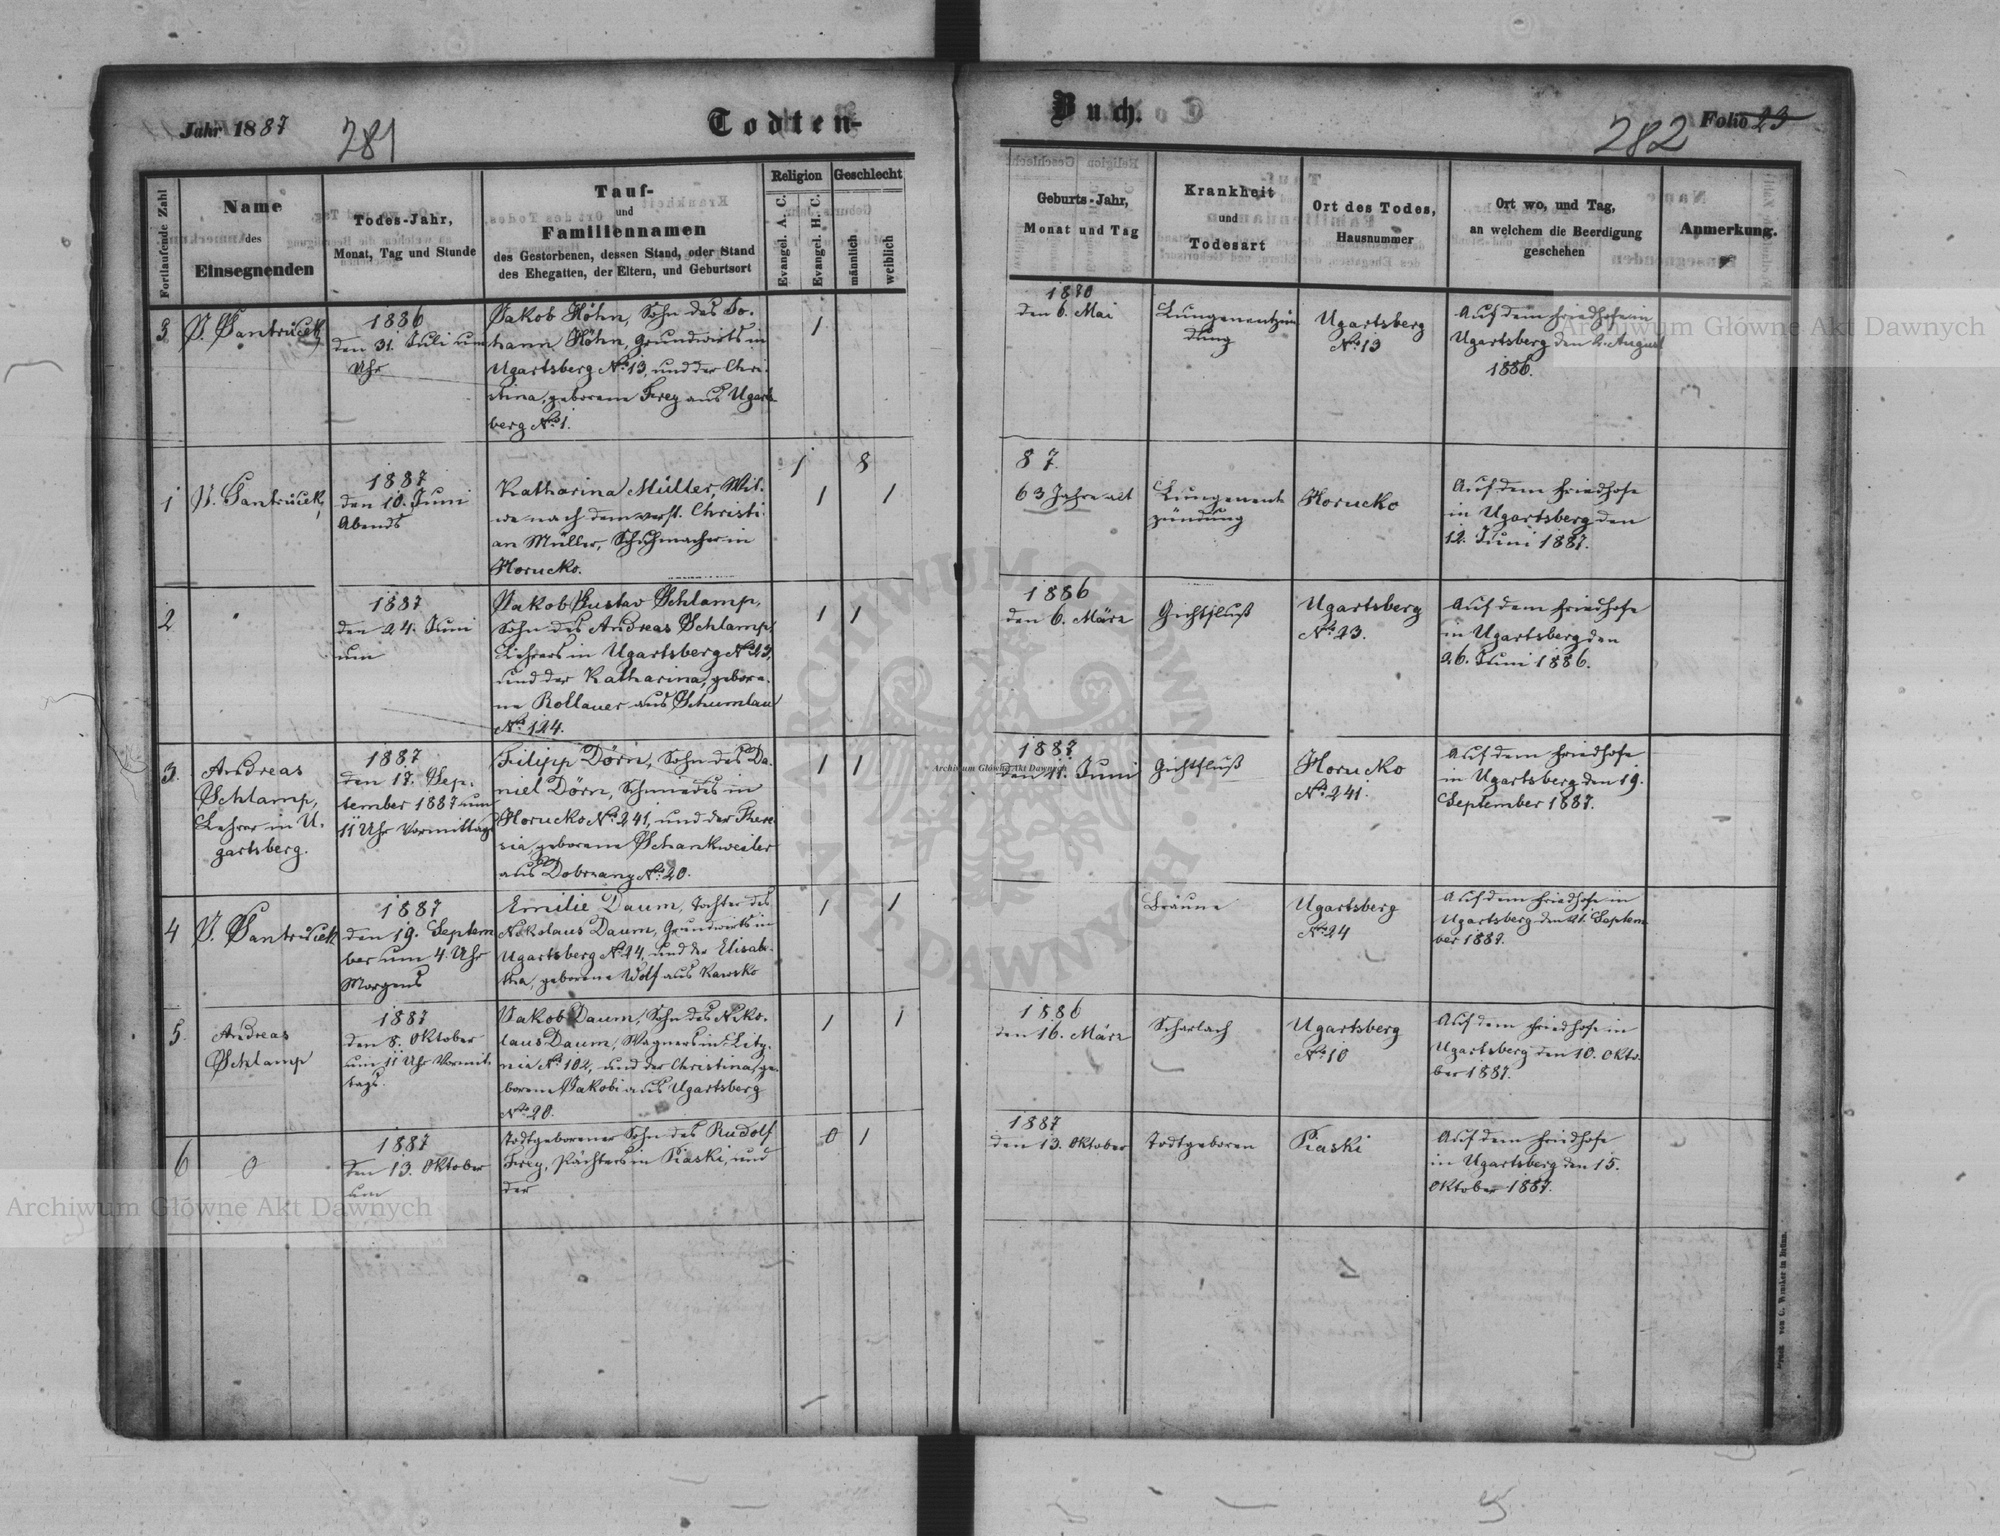 Jahr 1887
281
Todten-
Buch.
282
Folio 23
Fortlaufende Zahl
Name
des
Einsegnenden
Todes-Jahr,
Monat, Tag und Stunde
Tauf-
und
Familiennamen
des Gestorbenen, dessen Stand, oder Stand
des Ehegatten, der Eltern, und Geburtsort
Religion
Evangel. A. C.
Evangel. H. C.
Geschlecht
männlich
weiblich
Geburts-Jahr,
Monat und Tag
Krankheit
und
Todesart
Ort des Todes,
Hausnummer
Ort wo, und Tag,
an welchem die Beerdigung
geschehen
Anmerkung.
3
1886
den 31. Juli um
Uhr
Jakob Höhn, Sohn des Jo-
hann Höhn, Grundwirts in
Ugartsberg No. 13, und der Chri-
stina, geborene Frey aus Ugarts-
berg No. 1.
1
1870
den 6. Mai
Lungenentzün
dung
Ugartsberg
No. 13
Auf dem Friedhofe in
Ugartsberg den 2. August
1886.
1 8
8 7.
1
1887
den 10. Juni
Abends
Katharina Müller, Wit-
we nach dem verst. Christi-
an Müller, Schuhmacher in
Horucko.
1 1
63 Jahre alt
Lungenent
zündung
Horucko
Auf dem Friedhofe
in Ugartsberg den
12. Juni 1887.
2
1887
den 24. Juni
um
Jakob Gustav Schlamp,
Sohn des Andreas Schlamp,
Lehrers in Ugartsberg No. 23,
und der Katharina, gebore-
ne Rollauer aus Schumlau
No. 124.
1 1
1886
den 6. März
Gichtfluß
Ugartsberg
No. 23.
Auf dem Friedhofe
in Ugartsberg den
26. Juni 1886.
3.
Andreas
Schlamp,
Lehrer in U-
gartsberg.
1887
den 17. Sep-
tember 1887 um
11 Uhr Vormittags
Filipp Dörn, Sohn des Da-
niel Dörn, Schmiedes in
Horucko No. 241, und der There-
sia, geborene Schankweiler
aus Dobrzany No. 20.
1 1
1887
den 11. Juni
Gichtfluß
Horucko
No. 241.
Auf dem Friedhofe
in Ugartsberg den 19.
September 1887.
4
1887
den 19. Septem
ber um 4 Uhr
Morgens
Emilie Daum, Tochter des
Nikolaus Daum, Grundwirts in
Ugartsberg No. 24, und der Elisab-
tha, geborene Wolf aus Rawsko
1 1
Bräune
Ugartsberg
No. 24
Auf dem Friedhofe in
Ugartsberg den 21. Septem
ber 1887.
5.
Andreas
Schlamp
1887
den 8. Oktober
um 11 Uhr Vormit-
tags.
Jakob Daum, Sohn des Niko-
laus Daum, Wagners in Lity-
nia No. 102, und der Christina, ge-
borene Jakobi aus Ugartsberg
No. 20.
1 1
1886
den 16. März
Scharlach
Ugartsberg
No. 10
Auf dem Friedhofe in
Ugartsberg den 10. Okto-
ber 1887.
6
0
1887
den 13. Oktober
um
Todtgeborener Sohn des Rudolf
Frey, Pächters in Piaski, und
der
0 1
1887
den 13. Oktober
Todtgeboren
Piaski
Auf dem Friedhofe
in Ugartsberg den 15.
Oktober 1887.
Archiwum Główne Akt Dawnych
Archiwum Główne Akt Dawnych
Archiwum Główne Akt Dawnych
ARCHIWUM GŁÓWNE AKT DAWNYCH
Druck von C. Winiker in Brünn.